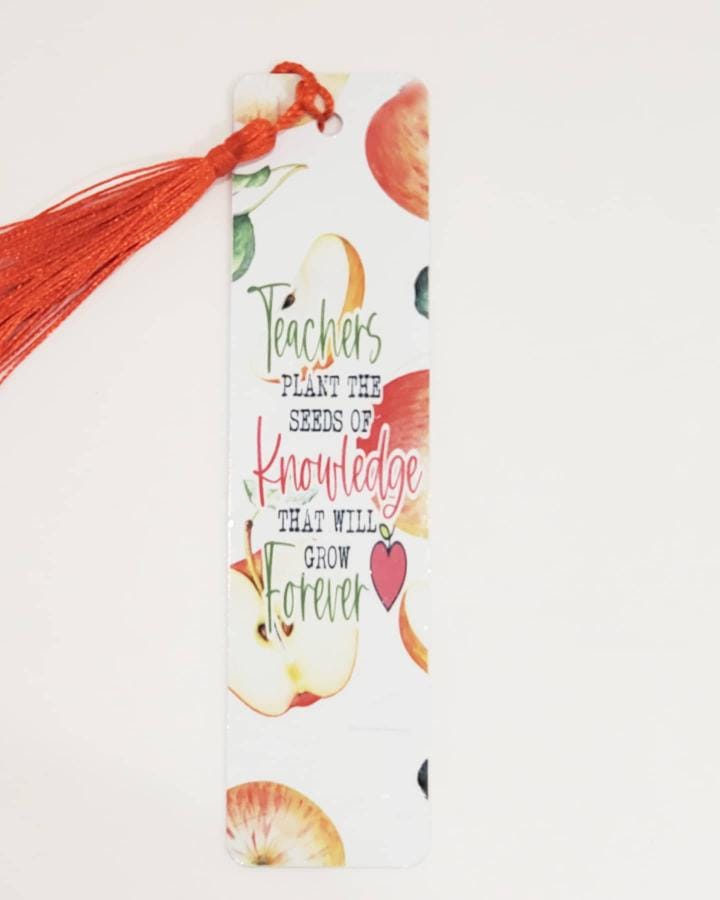 Teachers
PLANT THE
SEEDS OF
Knowledge
THAT WILL
GROW
Forever